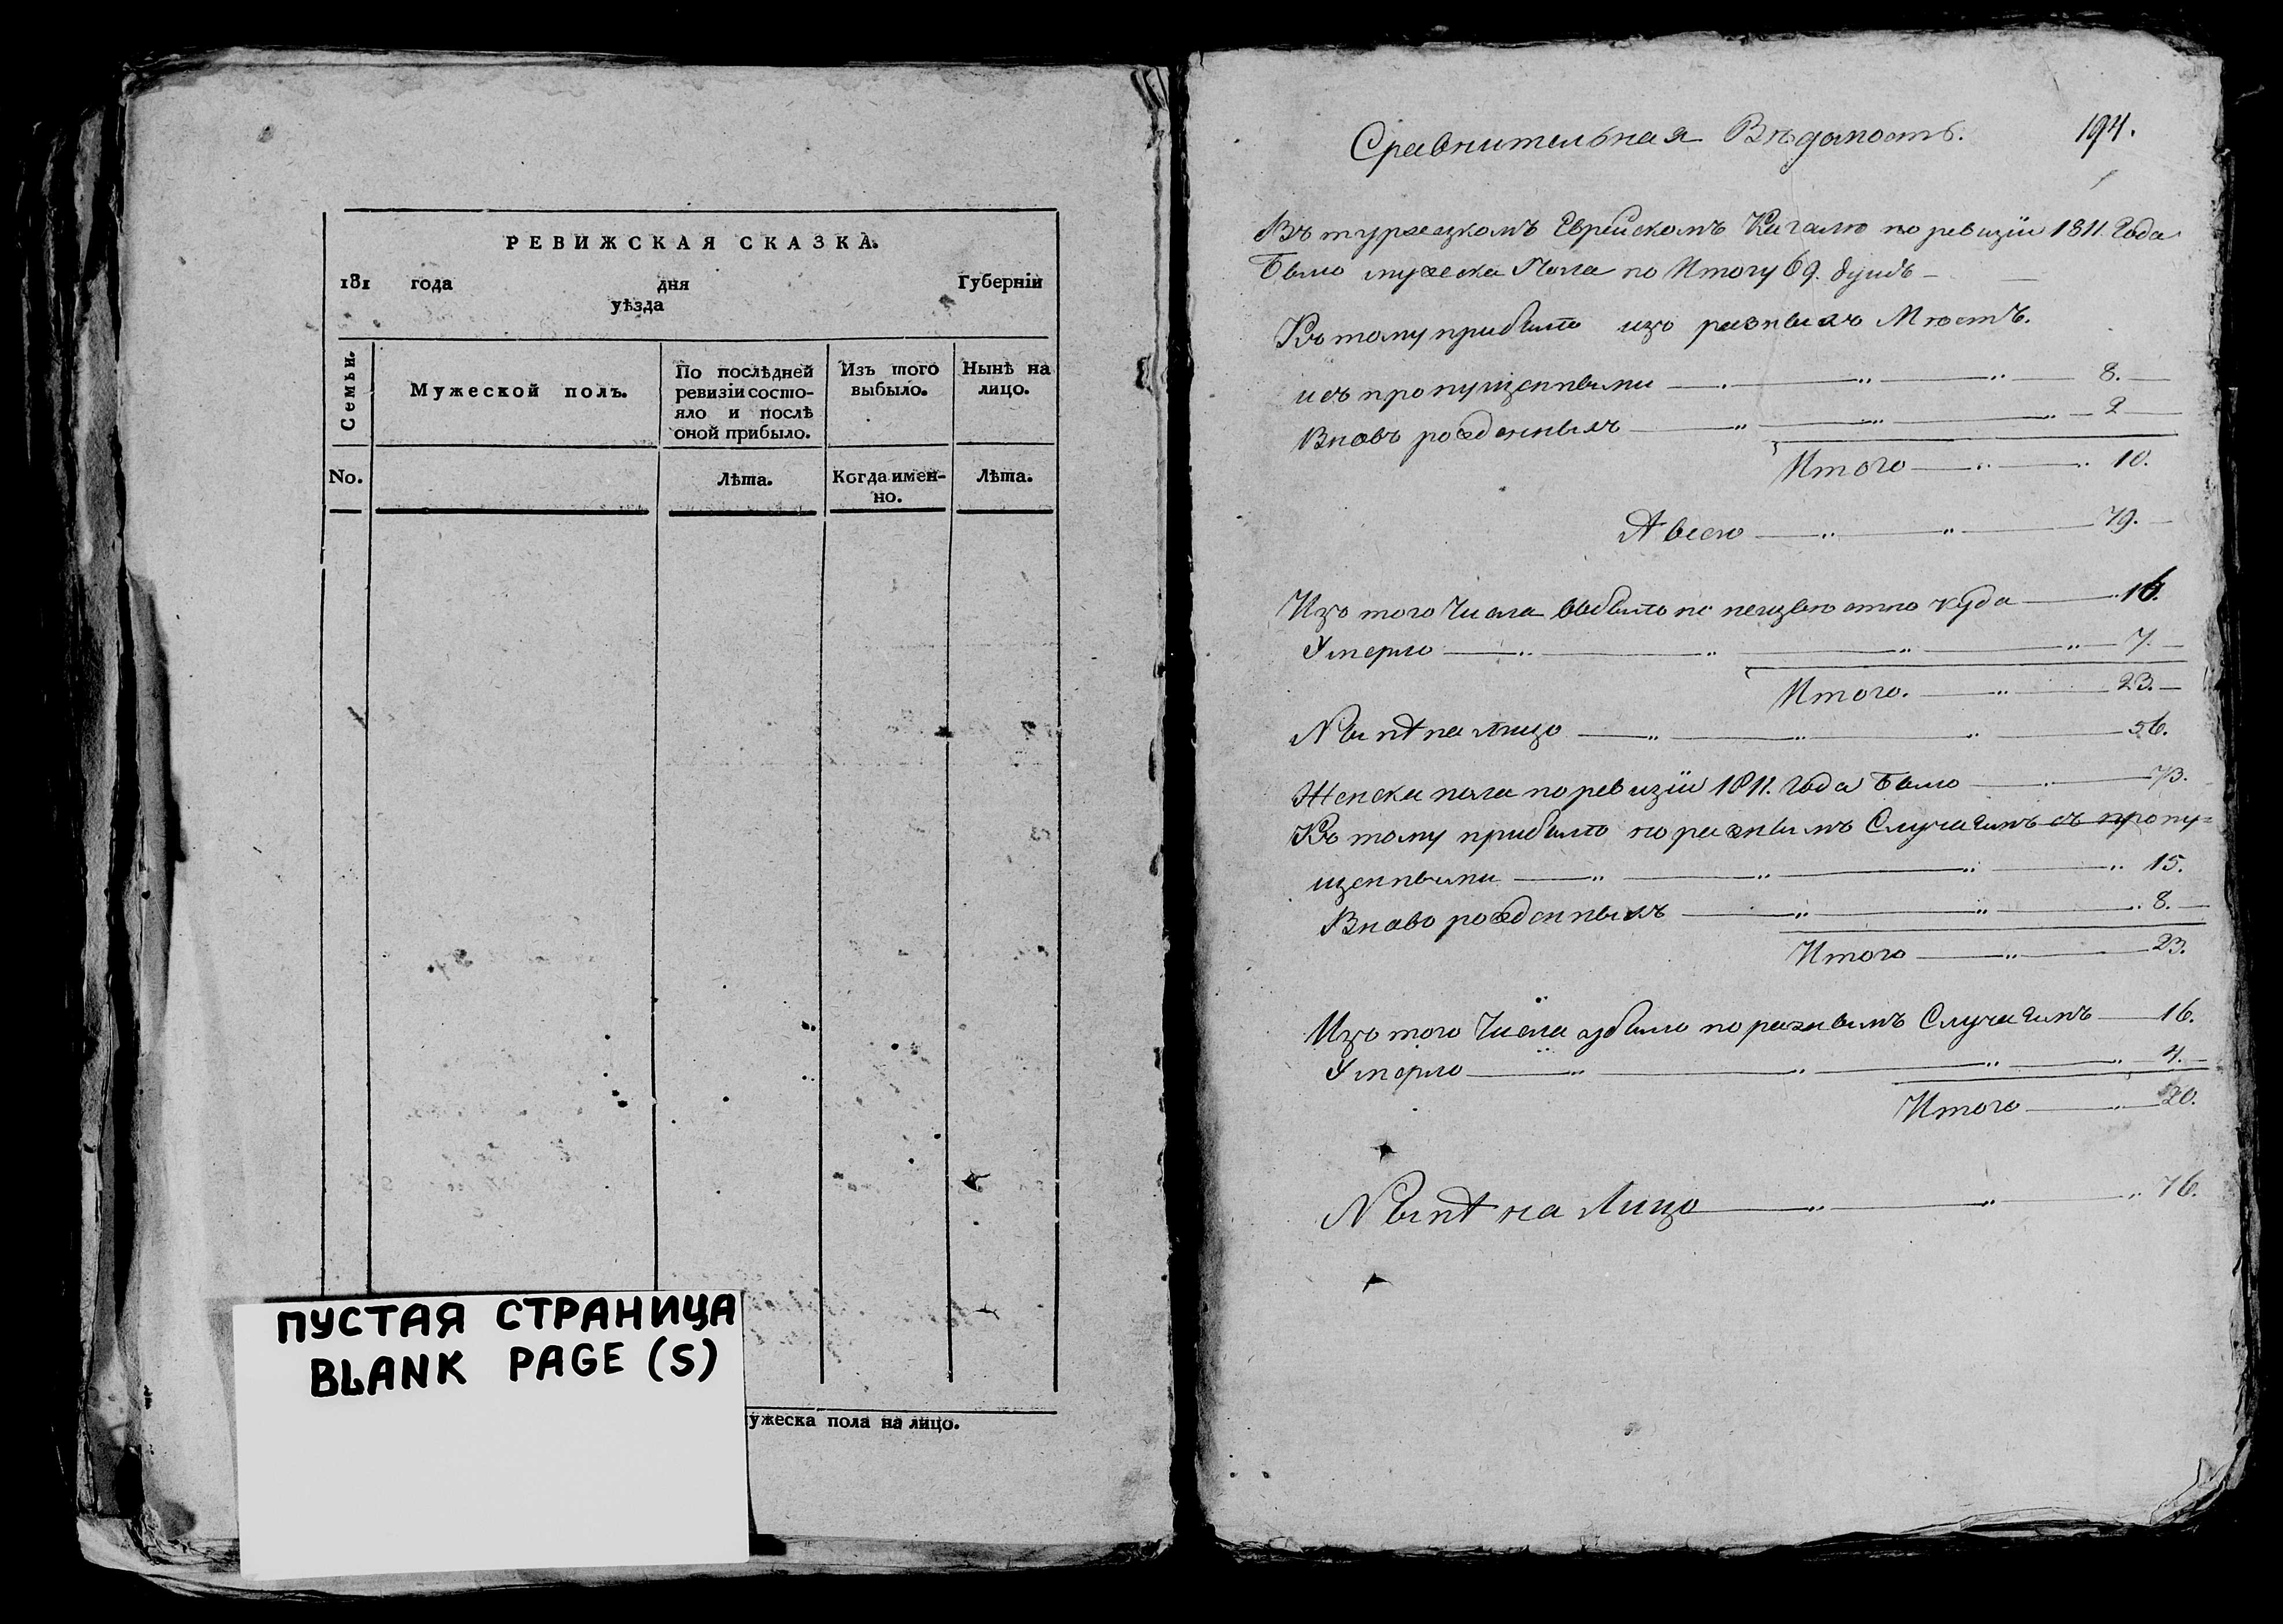 РЕВИЖСКАЯ СКАЗКА.
181 года дня Губерніи
уѣзда
Семьи.
Мужеской полъ.
По послѣдней
ревизіи состо-
яло и послѣ
оной прибыло.
Изъ того
выбыло.
Нынѣ на
лицо.
No.
Лѣта.
Когда имен-
но.
Лѣта.
ПУСТАЯ СТРАНИЦА
BLANK PAGE (S)
ужеска пола на лицо.
Сравнительная Вѣдомость. 194.
Въ туржецкомъ Еврейскомъ Кагалѣ по ревизіи 1811. Года
Было мужеска Пола по Итогу 69. душъ —
Къ тому прибыло изъ разныхъ Мѣстъ.
и съ пропущенными — 8. —
Вновь рожденныхъ — 2 —
Итого — 10.
А всего — 79. —
Изъ того Числа выбыло не неизвѣстно куда — 16.
Умерло — 7. —
Итого. — 23. —
Нынѣ на лицо — 56.
Женска пола по ревизіи 1811. Года Было — 73.
Къ тому прибыло по разнымъ Случаямъ съ пропу=
щенными — 15.
Вновь рожденныхъ — 8. —
Итого — 23.
Изъ того Числа убыло по разнымъ Случаямъ — 16.
Умерло — 4. —
Итого — 20.
Нынѣ на Лицо — 76.